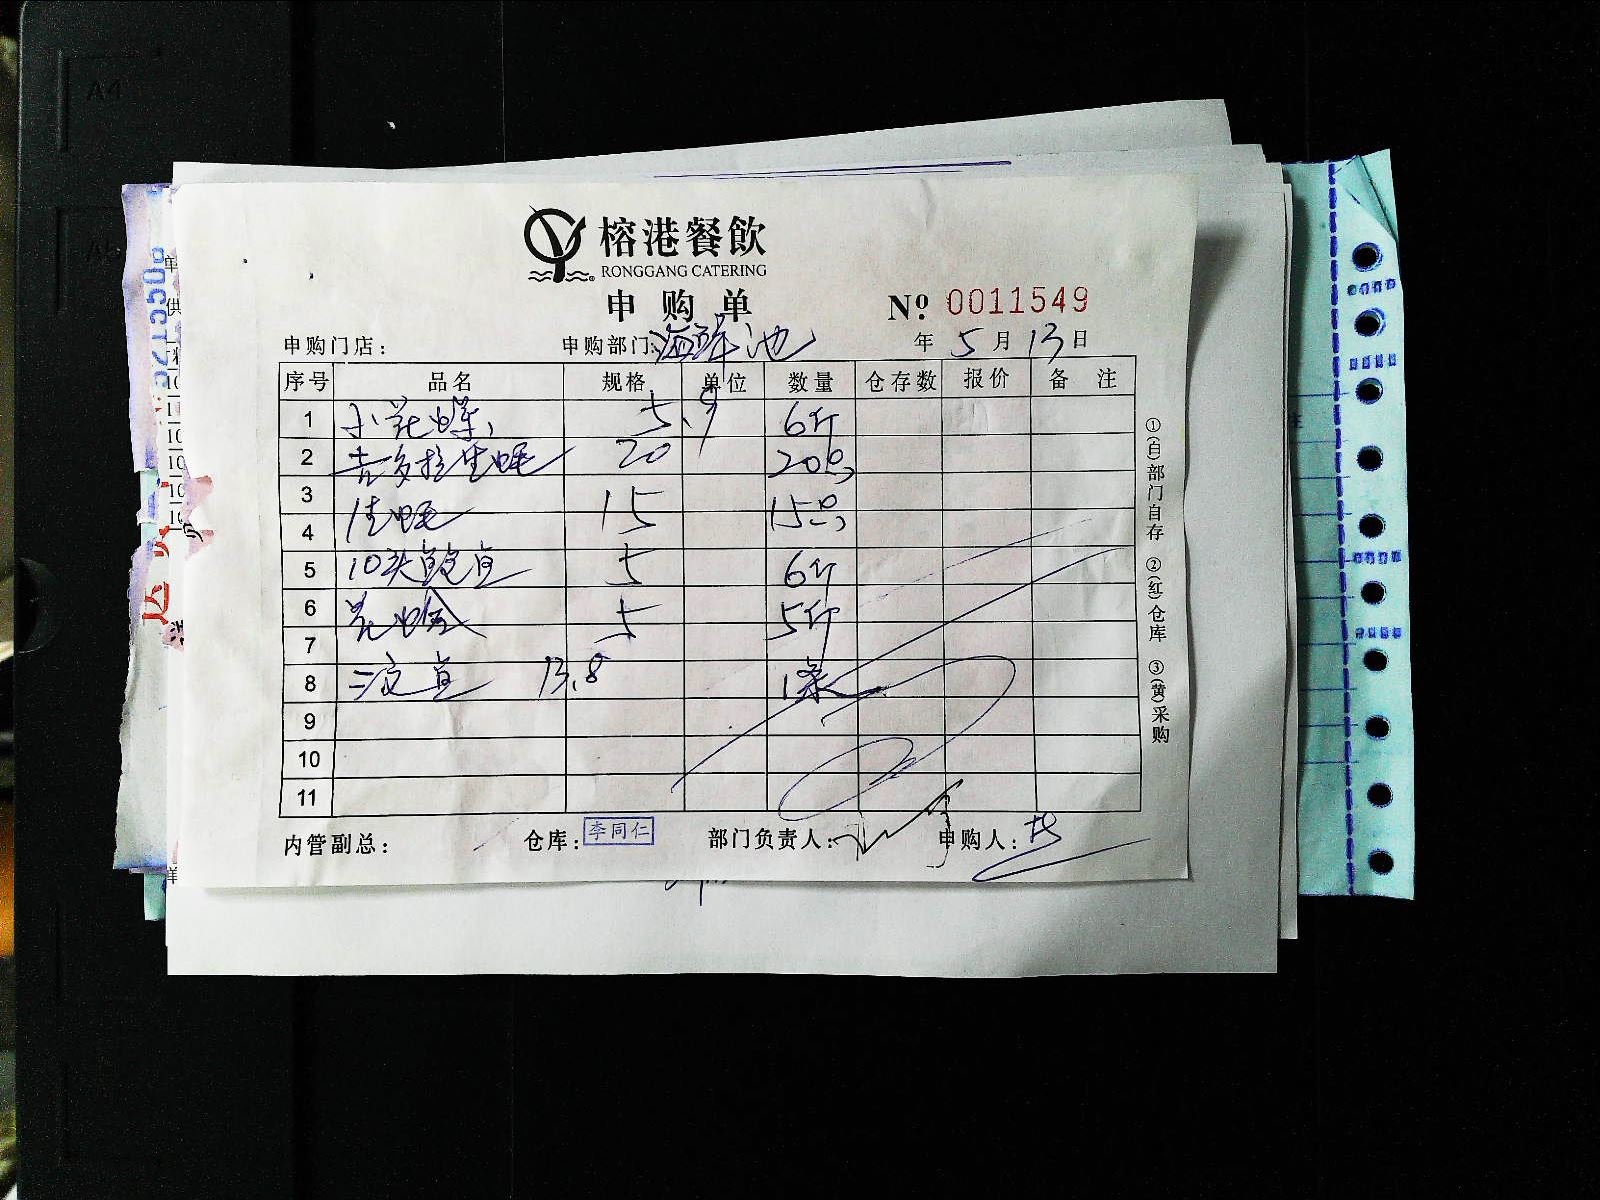 A4
A5
榕港餐飲
RONGGANG CATERING
申购单
Nº 0011549
申购门店： 申购部门：海鲜池 年 5 月 13 日
序号 品名 规格 单位 数量 仓存数 报价 备 注
1 小花螺 5.9 6斤
2 吉多拉生蚝 20 20只
3
佳蚝 15 15只
4
5 10头鲍鱼 5 6斤
6 花蛤 5 5斤
7
8 三文鱼 13.8 1条
9
10
11
内管副总： 仓库：李同仁 部门负责人： 申购人：
①(白)部门自存 ②(红)仓库 ③(黄)采购